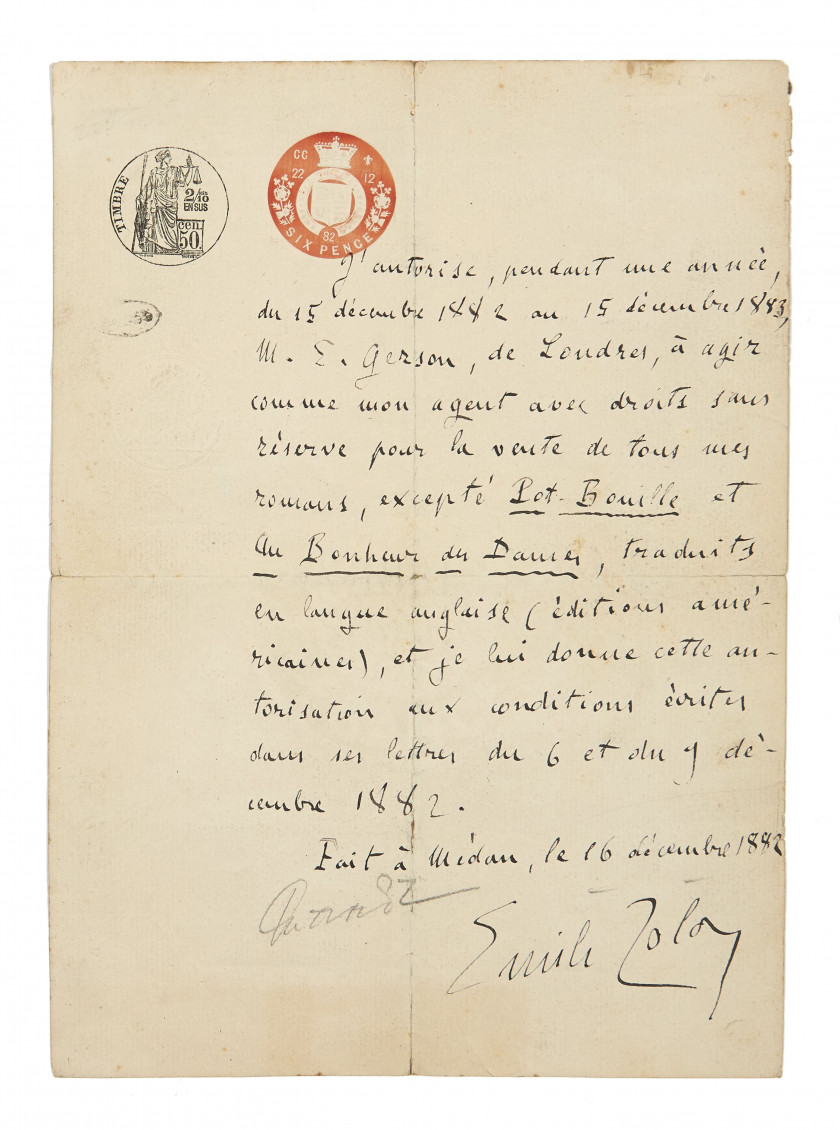 TIMBRE
2/10
EN SUS
CEN.
50.
CG
22 12
82
SIX PENCE
J'autorise, pendant une année,
du 15 décembre 1882 au 15 décembre 1883,
M. E. Gerson, de Londres, à agir
comme mon agent avec droits sans
réserve pour la vente de tous mes
romans, excepté Pot-Bouille et
Au Bonheur des Dames, traduits
en langue anglaise (éditions amé-
ricaines), et je lui donne cette au-
torisation aux conditions écrites
dans ses lettres du 6 et du 9 dé-
cembre 1882.
Fait à Médan, le 16 décembre 1882
Emile Zola